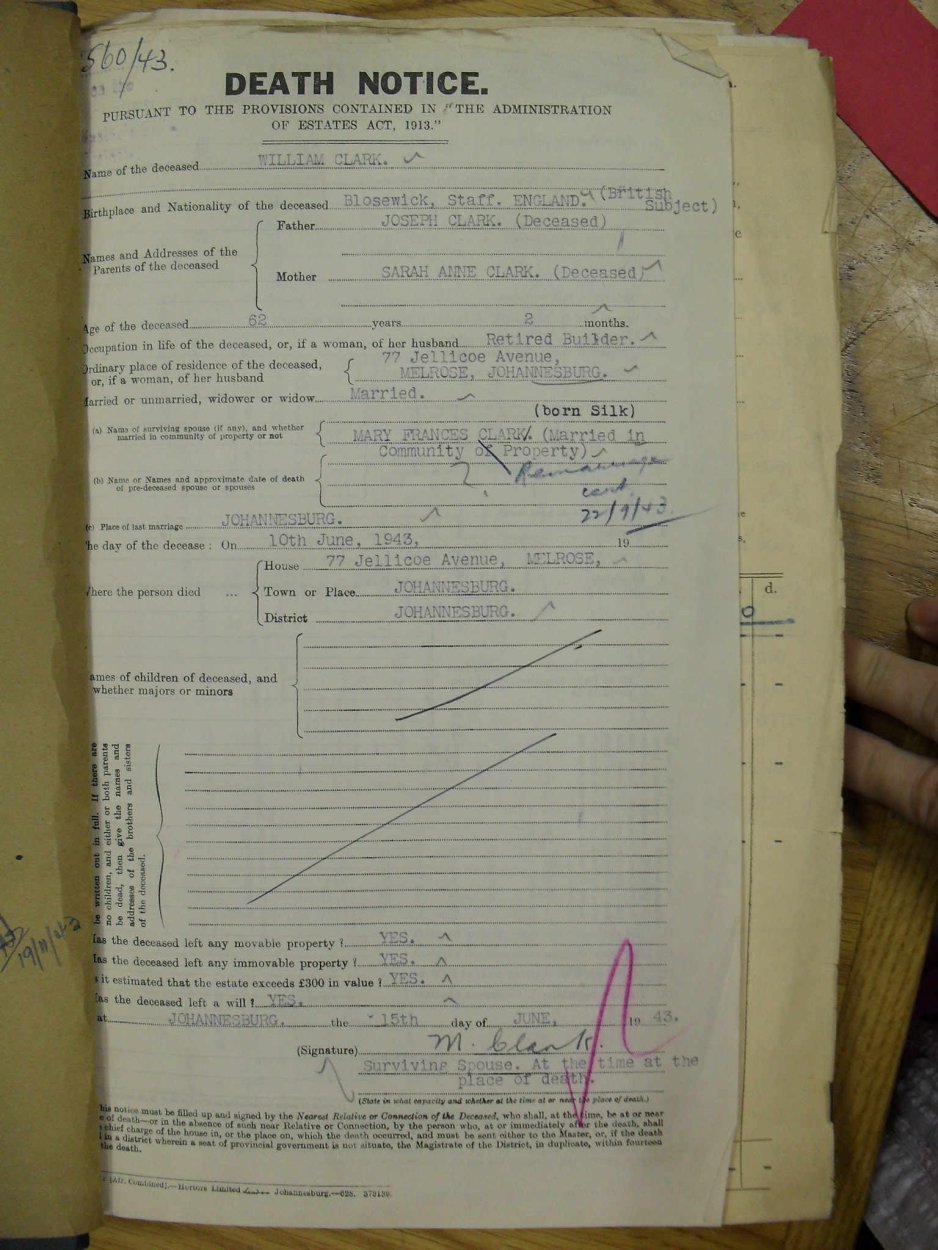 560/43.
DEATH NOTICE.
PURSUANT TO THE PROVISIONS CONTAINED IN "THE ADMINISTRATION
OF ESTATES ACT, 1913."
Name of the deceased WILLIAM CLARK.
Birthplace and Nationality of the deceased Blosewick, Staff. ENGLAND. (British
Subject)
Names and Addresses of the
Parents of the deceased
Father JOSEPH CLARK. (Deceased)
Mother SARAH ANNE CLARK. (Deceased)
Age of the deceased 62 years 2 months.
Occupation in life of the deceased, or, if a woman, of her husband Retired Builder.
Ordinary place of residence of the deceased,
or, if a woman, of her husband
77 Jellicoe Avenue,
MELROSE, JOHANNESBURG.
Married or unmarried, widower or widow Married.
(born Silk)
(a) Name of surviving spouse (if any), and whether
married in community of property or not
MARY FRANCES CLARK. (Married in
Community of Property)
(b) Name or Names and approximate date of death
of pre-deceased spouse or spouses
?
cert.
22/9/43.
(c) Place of last marriage JOHANNESBURG.
he day of the decease : On 10th June, 1943, 19
here the person died ...
House 77 Jellicoe Avenue, MELROSE,
Town or Place JOHANNESBURG.
District JOHANNESBURG.
d.
0
ames of children of deceased, and
whether majors or minors
be written out in full. If there are
no children, and either or both parents
be dead, then give the names and
addresses of the brothers and sisters
of the deceased.
19/11/43
as the deceased left any movable property ? YES.
as the deceased left any immovable property ? YES.
s it estimated that the estate exceeds £300 in value ? YES.
as the deceased left a will ? YES.
at JOHANNESBURG. the 15th day of JUNE, 19 43.
(Signature) M. Clark.
Surviving Spouse. At the time at the
place of death.
(State in what capacity and whether at the time at or near the place of death.)
his notice must be filled up and signed by the Nearest Relative or Connection of the Deceased, who shall, at the time, be at or near
e of death—or in the absence of such near Relative or Connection, by the person who, at or immediately after the death, shall
chief charge of the house in, or the place on, which the death occurred, and must be sent either to the Master, or, if the death
in a district wherein a seat of provincial government is not situate, the Magistrate of the District, in duplicate, within fourteen
the death.
(Afr. Combined).—Hortors Limited Johannesburg.—628. 373139.